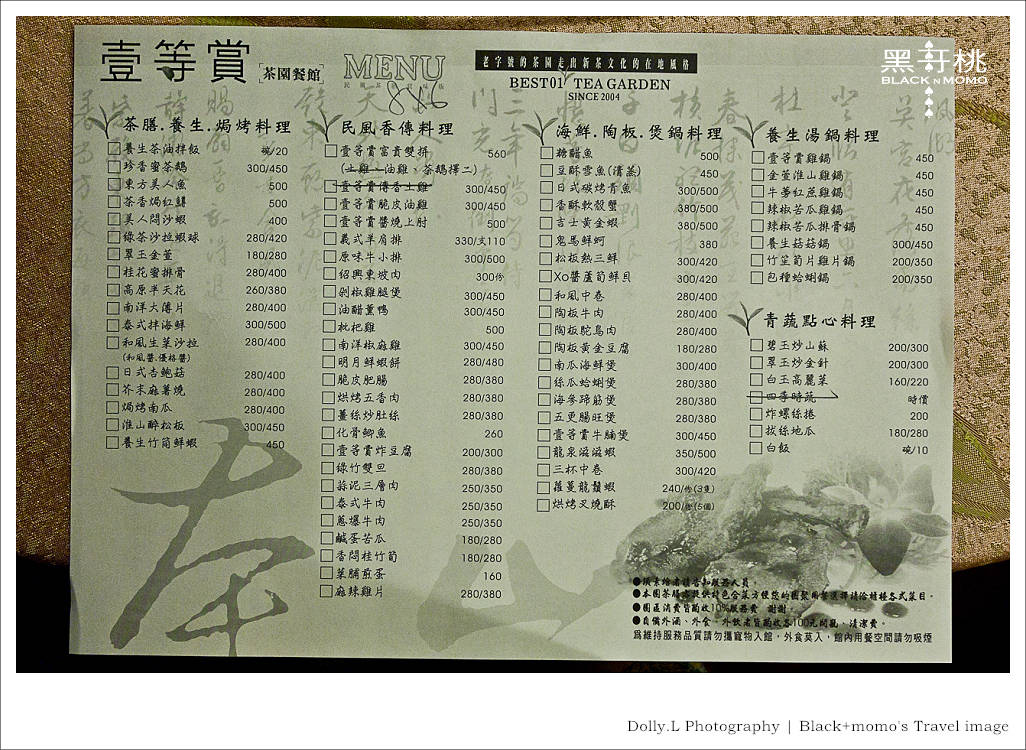 壹等賞
茶園餐館
MENU
老字號的茶園走出新茶文化的在地風格
BEST01 TEA GARDEN
SINCE 2004
黑軒桃
BLACK N MOMO
茶膳.養生.焗烤料理
養生茶油拌飯 碗/20
珍香蜜茶鵝 300/450
東方美人魚 500
茶香焗紅鱘 500
美人悶沙蝦 400
綠茶沙拉蝦球 280/420
翠玉金萱 180/280
桂花蜜排骨 280/400
高原半天花 260/380
南洋大薄片 280/400
泰式拌海鮮 300/500
和風生菜沙拉 280/400
(和風醬.優格醬)
日式杏鮑菇 280/400
芥末麻薯燒 280/400
焗烤南瓜 280/400
淮山醉松板 300/450
養生竹筒鮮蝦 450
民風香傳料理
壹等賞富貴雙拼 560
(土雞、油雞、茶鵝擇二)
壹等賞傳香土雞 300/450
壹等賞脆皮油雞 300/450
壹等賞醬燒上肘 500
義式羊肩排 330/支110
原味牛小排 300/500
紹興東坡肉 300份
剁椒雞腿煲 300/450
油醋薰鴨 300/450
枇杷雞 500
南洋椒麻雞 300/450
明月鮮蝦餅 280/480
脆皮肥腸 280/380
烘烤五香肉 280/380
薑絲炒肚絲 280/380
化骨鯽魚 260
壹等賞炸豆腐 200/300
綠竹雙旦 280/380
蒜泥三層肉 250/350
泰式牛肉 250/350
蔥爆牛肉 250/350
鹹蛋苦瓜 180/280
香悶桂竹筍 180/280
菜脯煎蛋 160
麻辣雞片 280/380
海鮮.陶板.煲鍋料理
糖醋魚 500
豆酥雪魚(清蒸) 450
日式碳烤青魚 300/500
香酥軟殼蟹 380/500
吉士黃金蝦 380/500
鬼馬鮮蚵 380
松板熱三鮮 300/420
Xo醬蘆筍鮮貝 300/420
和風中卷 280/400
陶板牛肉 280/400
陶板鴕鳥肉 280/400
陶板黃金豆腐 180/280
南瓜海鮮煲 300/400
絲瓜蛤蜊煲 280/380
海參蹄筋煲 280/380
五更腸旺煲 280/380
壹等賞牛腩煲 300/450
龍泉滋滋蝦 350/500
三杯中卷 300/420
蘿蔓龍鬚蝦 240/份(3隻)
烘烤叉燒酥 200/份(5個)
養生湯鍋料理
壹等賞雞鍋 450
金萱淮山雞鍋 450
牛蒡紅蔘雞鍋 450
辣椒苦瓜雞鍋 450
辣椒苦瓜排骨鍋 450
養生菇菇鍋 300/450
竹笙筍片雞片鍋 200/350
包種蛤蜊鍋 200/350
青蔬點心料理
碧玉炒山蘇 200/300
翠玉炒金針 200/300
白玉高麗菜 160/220
四季時蔬 時價
炸螺絲捲 200
拔絲地瓜 180/280
白飯 碗/10
●須素燴者請告知服務人員。
●本園茶膳亦提供特色合菜方便您的團聚用餐選擇請洽種種各式菜目。
●園區消費皆酌收10%服務費 謝謝。
●自備外酒、外食、外飲者皆酌收各100元開瓶、清潔費。
為維持服務品質請勿攜寵物入館，外食莫入，館內用餐空間請勿吸煙
Dolly.L Photography | Black+momo's Travel image